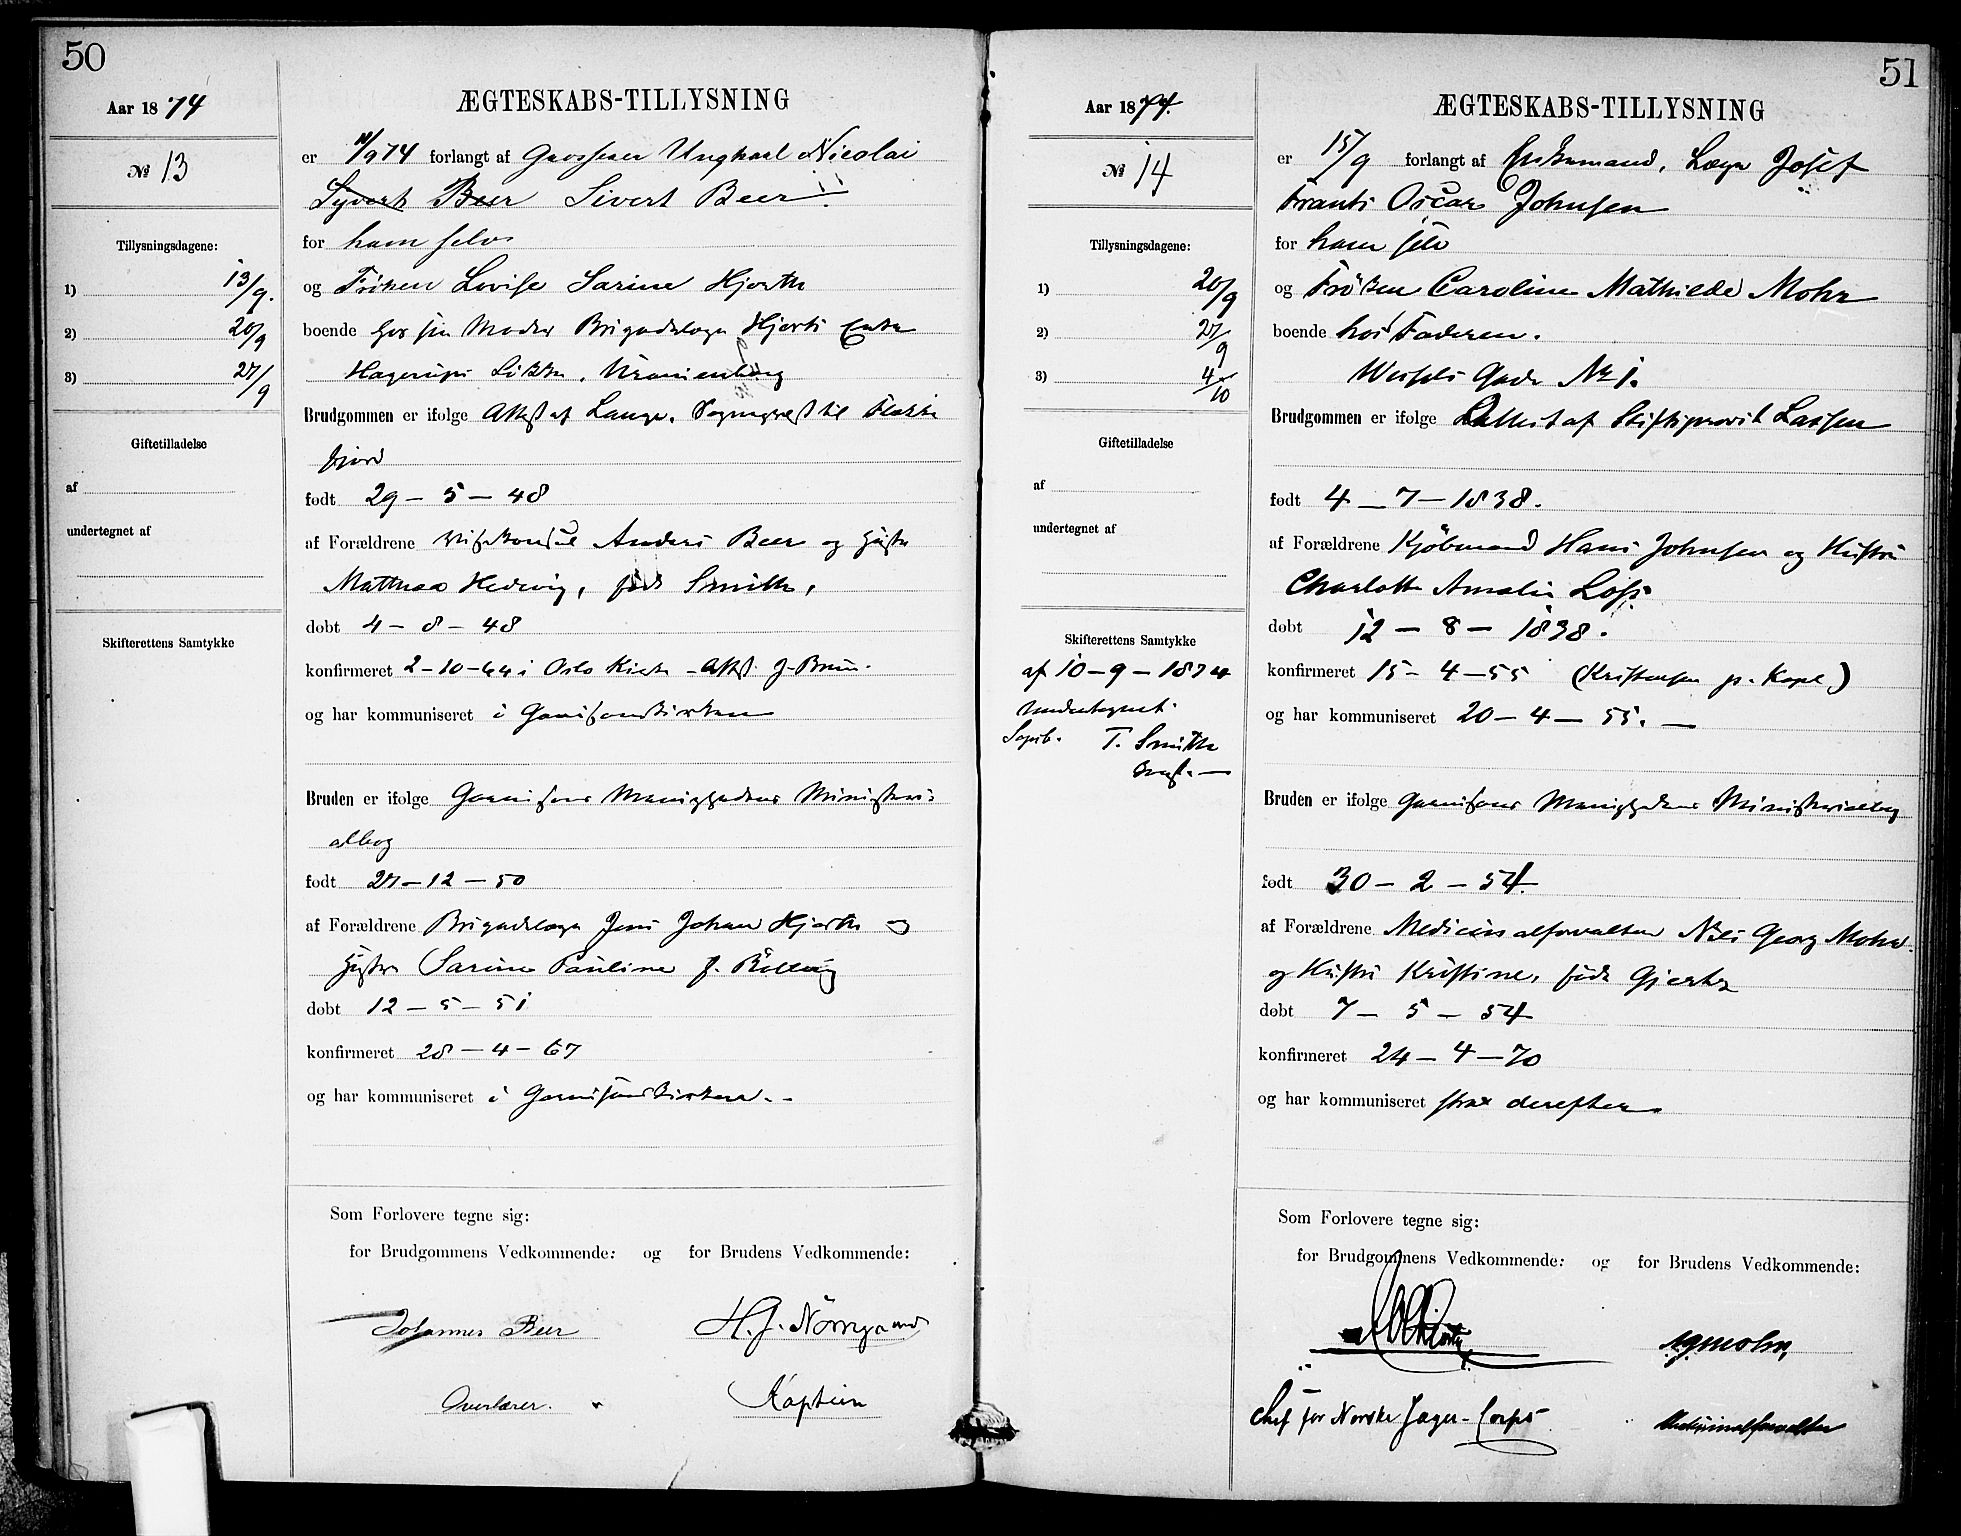 50
Aar 1874
ÆGTESKABS-TILLYSNING
№ 13
er 11/9 74 forlangt af Grosserer Ungkarl Nicolai
Syvert Beer Sivert Beer
Tillysningsdagene:
for ham selv
1) 13/9.
og Frøken Lovise Sarine Hjorth
2) 20/9
boende hos sin Moder Brigadelæge Hjorts Enke
3) 27/9
Hagerups Løkke, Uranienborg
Brudgommen er ifolge Attest af Lange, Sogneprest til Flekke
fjord
Giftetilladelse
af
født 29 - 5 - 48
undertegnet af
af Forældrene Visekonsul Anders Beer og Hustru
Mathea Hedvig, født Smith,
døbt 4 - 8 - 48
Skifterettens Samtykke
konfirmeret 2-10-64 i Oslo Kirke - Attst J. Brun.
og har kommuniseret i Garnisonskirken
Bruden er ifolge Garnisons Menighedens Ministeri-
albog
født 27 - 12 - 50
af Forældrene Brigadelæge Jens Johan Hjorth og
Hustru Sarine Pauline f. Rolling
døbt 12 - 5 - 51
konfirmeret 28 - 4 - 67
og har kommuniseret i Garnisonskirken.
Som Forlovere tegne sig:
for Brudgommens Vedkommende: og for Brudens Vedkommende:
Johannes Beer H. J. Nörregaard
Overlærer. Kaptein
51
Aar 1874.
ÆGTESKABS-TILLYSNING
№ 14
er 15/9 forlangt af Enkemand, Læge Josef
Frants Oscar Johnsen
Tillysningsdagene:
for ham selv
1) 20/9
og Frøken Caroline Mathilde Mohr
2) 27/9
boende hos Faderen.
3) 4/10
Wessels Gade No 1.
Brudgommen er ifolge Attest af Stiftsprovst Lassen
Giftetilladelse
af
født 4 - 7 - 1838.
undertegnet af
af Forældrene Kjøbmand Hans Johnsen og Hustru
Charlotte Amalie
døbt 12 - 8 - 1838.
Skifterettens Samtykke
af 10 - 9 - 1874
undertegnet.
T. Smith
konfirmeret 15 - 4 - 55 (Kristensen p. Kapl)
og har kommuniseret 20 - 4 - 55.
Bruden er ifolge Garnisons Menighedens Ministerialbog
født 30 - 2 - 54.
af Forældrene Medicinalforvalter Nils Georg Mohr
og Hustru Kristine, født Gjertz
døbt 7 - 5 - 54
konfirmeret 24 - 4 - 70
og har kommuniseret strax derefter
Som Forlovere tegne sig:
for Brudgommens Vedkommende: og for Brudens Vedkommende:
NGMohr,
Chef for Norske Jæger-Corps Medicinalforvalter